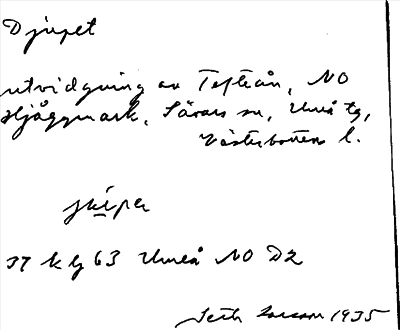 Djupet
utvidgning av Tefteån, NO
Hjåggmark, Sävars sn, Umeå tg,
Västerbottens l.
jképer
37 kg 63 Umeå NO D2
Seth Larsson 1935